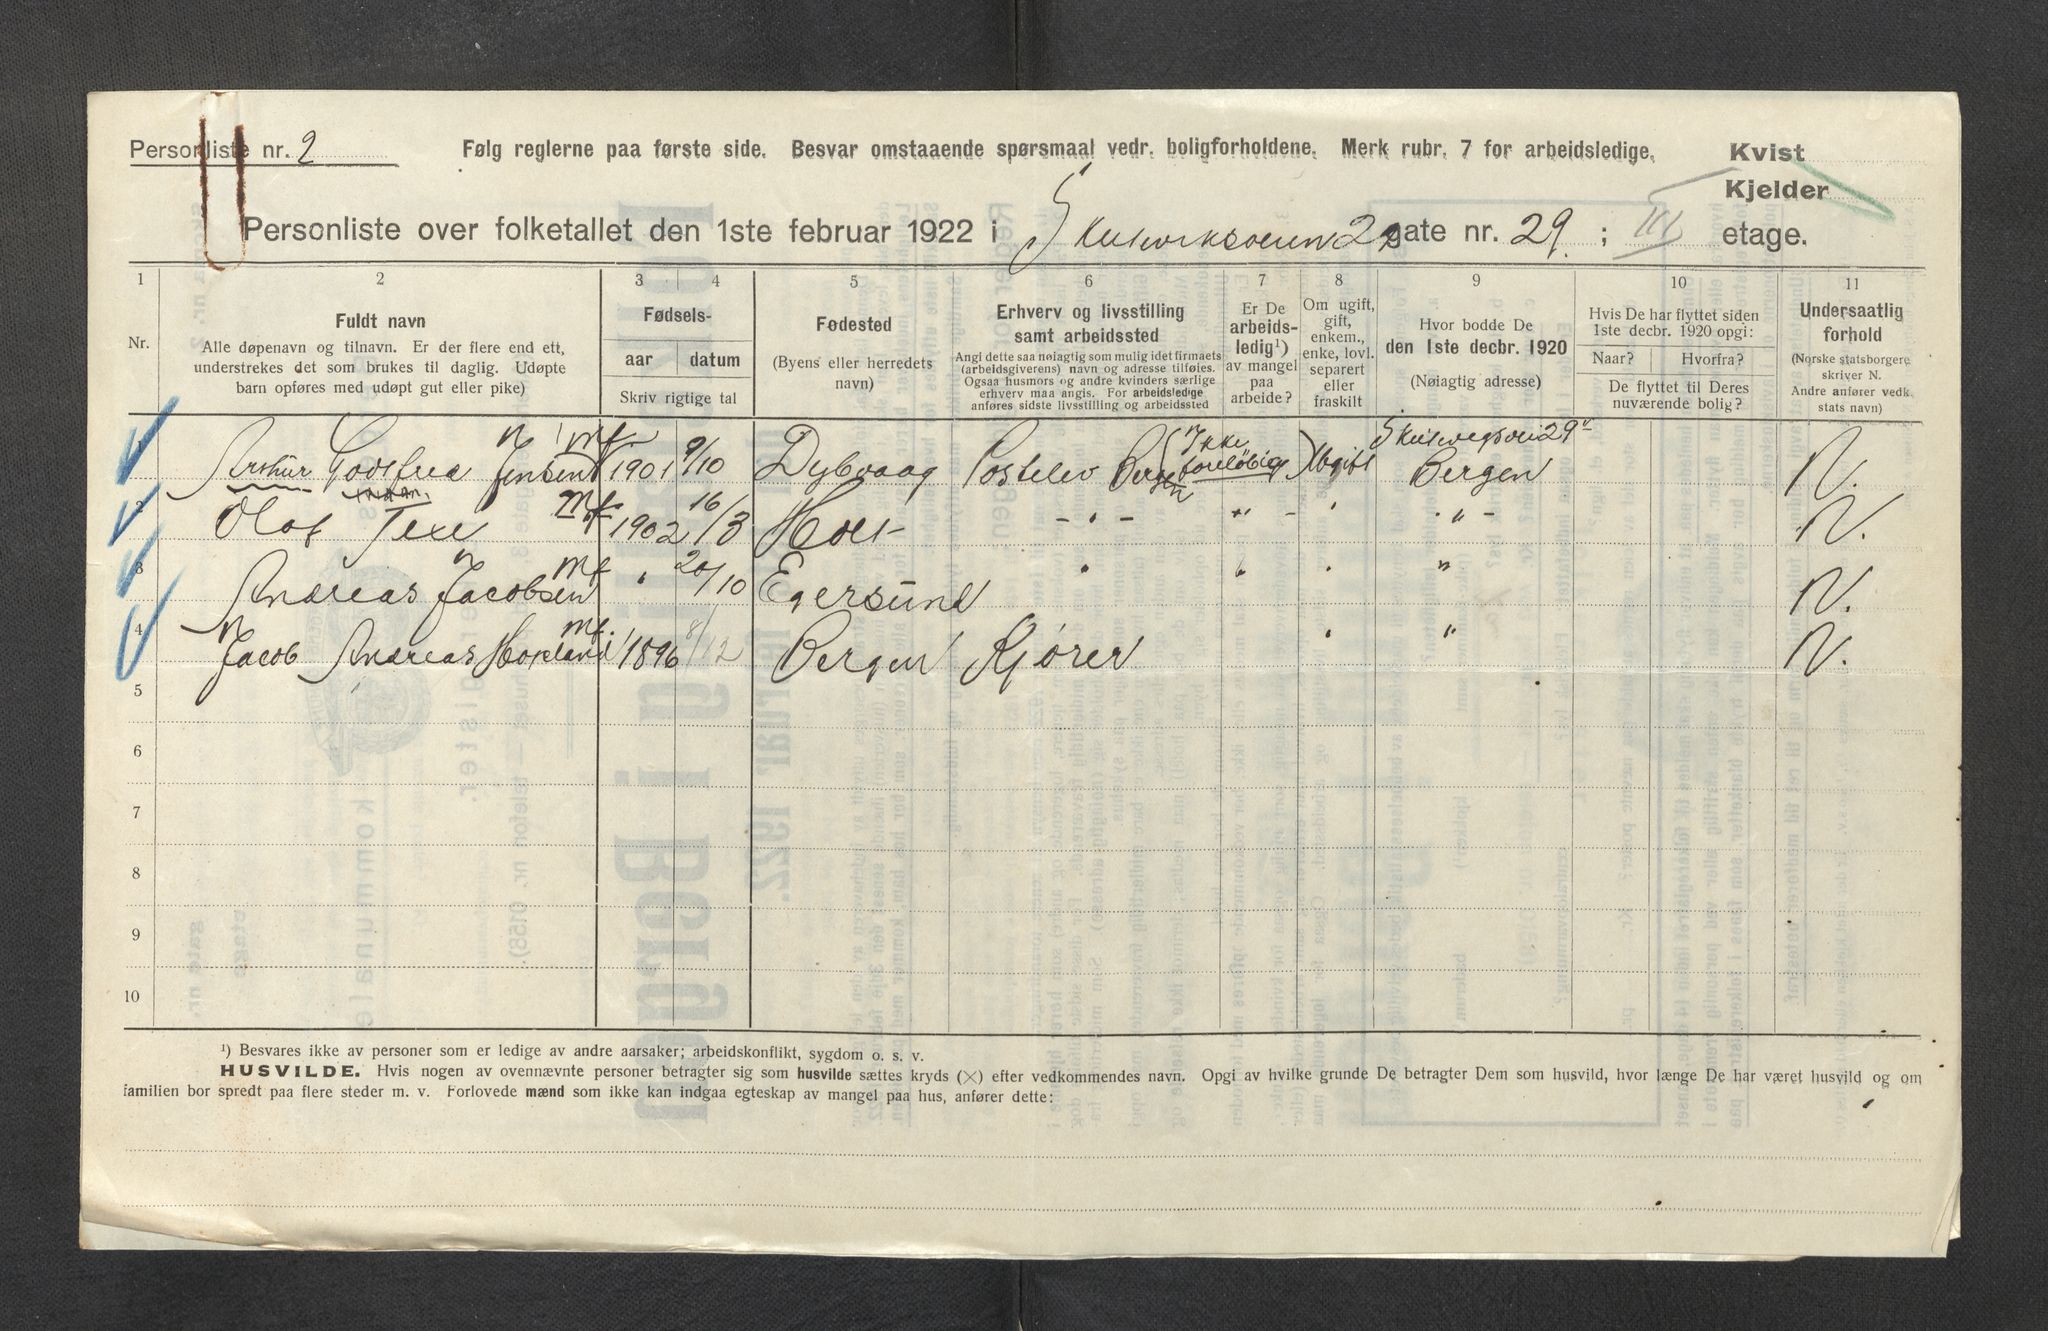 Personliste nr. 2
Følg reglerne paa første side. Besvar omstaaende spørsmaal vedr. boligforholdene. Merk rubr. 7 for arbeidsledige.
Kvist
Kjelder
Personliste over folketallet den 1ste februar 1922 i gate nr. 29. ; III etage.
1 2 3 4 5 6 7 8 9 10 11
Nr.
Fuldt navn
Alle døpenavn og tilnavn. Er der flere end ett,
understrekes det som brukes til daglig. Udøpte
barn opføres med udøpt gut eller pike)
Fødsels-
aar datum
Skriv rigtige tal
Fødested
(Byens eller herredets
navn)
Erhverv og livsstilling
samt arbeidssted
Angi dette saa nøiagtig som mulig idet firmaets
(arbeidsgiverens) navn og adresse tilføies.
Ogsaa husmors og andre kvinders særlige
erhverv maa angis. For arbeidsledige
anføres sidste livsstilling og arbeidssted
Er De
arbeids-
ledig¹)
av mangel
paa
arbeide?
Om ugift,
gift,
enkem.,
enke, lovl.
separert
eller
fraskilt
Hvor bodde De
den 1ste decbr. 1920
(Nøiagtig adresse)
Hvis De har flyttet siden
1ste decbr. 1920 opgi:
Naar? Hvorfra?
De flyttet til Deres
nuværende bolig?
Undersaatlig
forhold
(Norske statsborgere
skriver N.
Andre anfører vedk.
stats navn)
Arthur Godtfred Jensen 1901 9/10 Dybvaag Postelev Bergen (Ikke foreløbig) Ugift 29 Bergen N.
2 Olaf mk 1902 16/3 Holt - " - " - " - " - N.
3 Andreas Jacobsen mk " 20/10 Egersund " " " " N.
4 Jacob Andreas Hopland mk. 1896 8/12 Bergen Kjører " " N.
5
6
7
8
9
10
¹) Besvares ikke av personer som er ledige av andre aarsaker; arbeidskonflikt, sygdom o. s. v.
HUSVILDE. Hvis nogen av ovennævnte personer betragter sig som husvilde sættes kryds (×) efter vedkommendes navn. Opgi av hvilke grunde De betragter Dem som husvild, hvor længe De har været husvild og om
familien bor spredt paa flere steder m. v. Forlovede mænd som ikke kan indgaa egteskap av mangel paa hus, anfører dette: